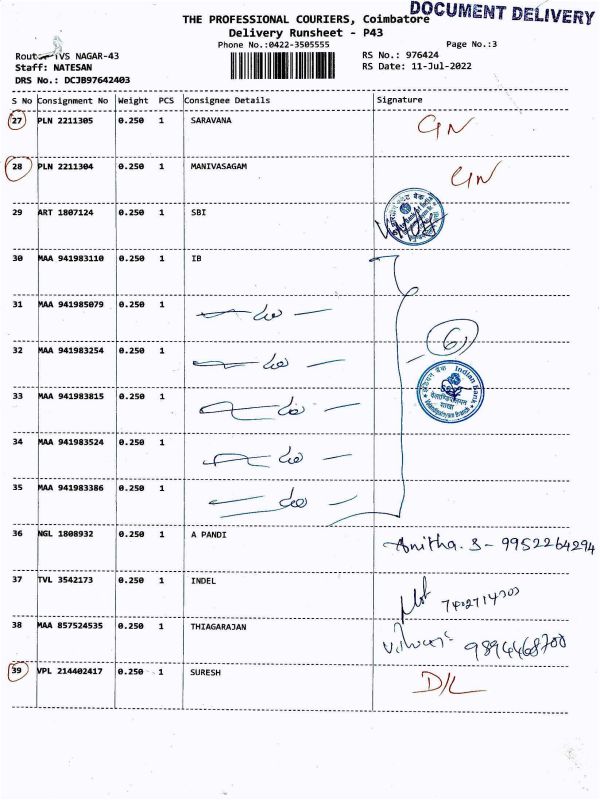 DOCUMENT DELIVERY
THE PROFESSIONAL COURIERS, Coimbatore
Delivery Runsheet - P43
Phone No.:0422-3505555
Page No.:3
TVS NAGAR-43
RS No.: 976424
Staff: NATESAN
RS Date: 11-Jul-2022
DRS No.: DCJB97642403
S No Consignment No Weight PCS Consignee Details Signature
27 PLN 2211305 0.250 1 SARAVANA
28 PLN 2211304 0.250 1 MANIVASAGAM
29 ART 1807124 0.250 1 SBI
30 MAA 941983110 0.250 1 IB
31 MAA 941985079 0.250 1
32 MAA 941983254 0.250 1
6
33 MAA 941983815 0.250 1
Indian Bank
34 MAA 941983524 0.250 1
35 MAA 941983386 0.250 1
36 NGL 1808932 0.250 1 A PANDI Anitha. S - 9952264294
37 TVL 3542173 0.250 1 INDEL
38 MAA 857524535 0.250 1 THIAGARAJAN 9894468700
39 VPL 214402417 0.250 1 SURESH D/L